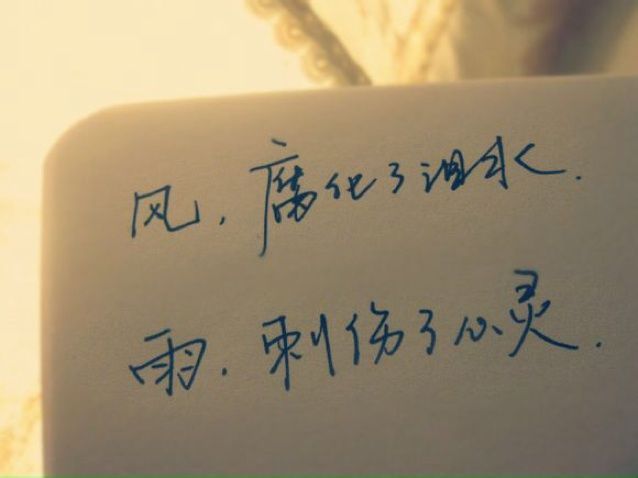 风，腐化了泪水．
雨．刺伤了心灵．